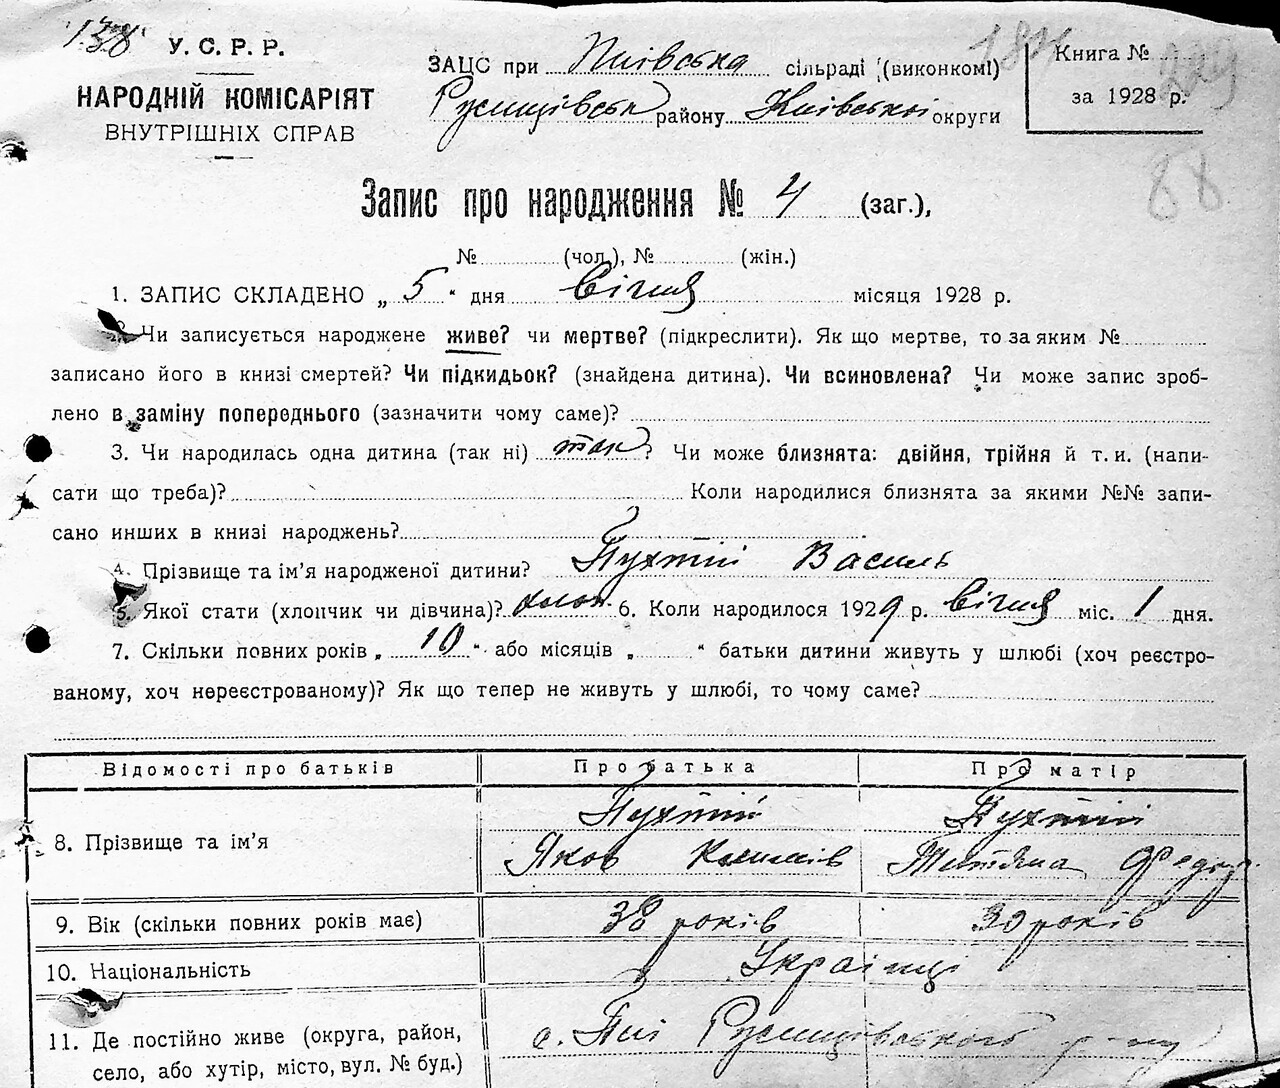 138
У. С. Р. Р.
НАРОДНІЙ КОМІСАРІЯТ
ВНУТРІШНІХ СПРАВ
ЗАЦС при Пиівська сільраді (виконкомі)
району Київської округи
Книга №
за 1928 р.
88
Запис про народження № 4 (заг.),
№ (чол.), № (жін.)
1. ЗАПИС СКЛАДЕНО „ 5 " дня Січня місяця 1928 р.
2. Чи записується народжене живе? чи мертве? (підкреслити). Як що мертве, то за яким №
записано його в книзі смертей? Чи підкидьок? (знайдена дитина). Чи всиновлена? Чи може запис зроб-
лено в заміну попереднього (зазначити чому саме)?
3. Чи народилась одна дитина (так ні) так? Чи може близнята: двійня, трійня й т. и. (напи-
сати що треба)? Коли народилися близнята за якими №№ запи-
сано инших в книзі народжень?
4. Прізвище та ім'я народженої дитини? Пухтій Василь
5. Якої стати (хлопчик чи дівчина)? хлоп. 6. Коли народилося 1929 р. Січня міс. 1 дня.
7. Скільки повних років „ 10 " або місяців „ " батьки дитини живуть у шлюбі (хоч реєстро-
ваному, хоч нереєстрованому)? Як що тепер не живуть у шлюбі, то чому саме?
Відомості про батьків Про батька Про матір
8. Прізвище та ім'я Пухтій Яков Пухтій Тетяна Федор
9. Вік (скільки повних років має) 38 років 30 років
10. Національність Українці
11. Де постійно живе (округа, район, с. Пиї
село, або хутір, місто, вул. № буд.)